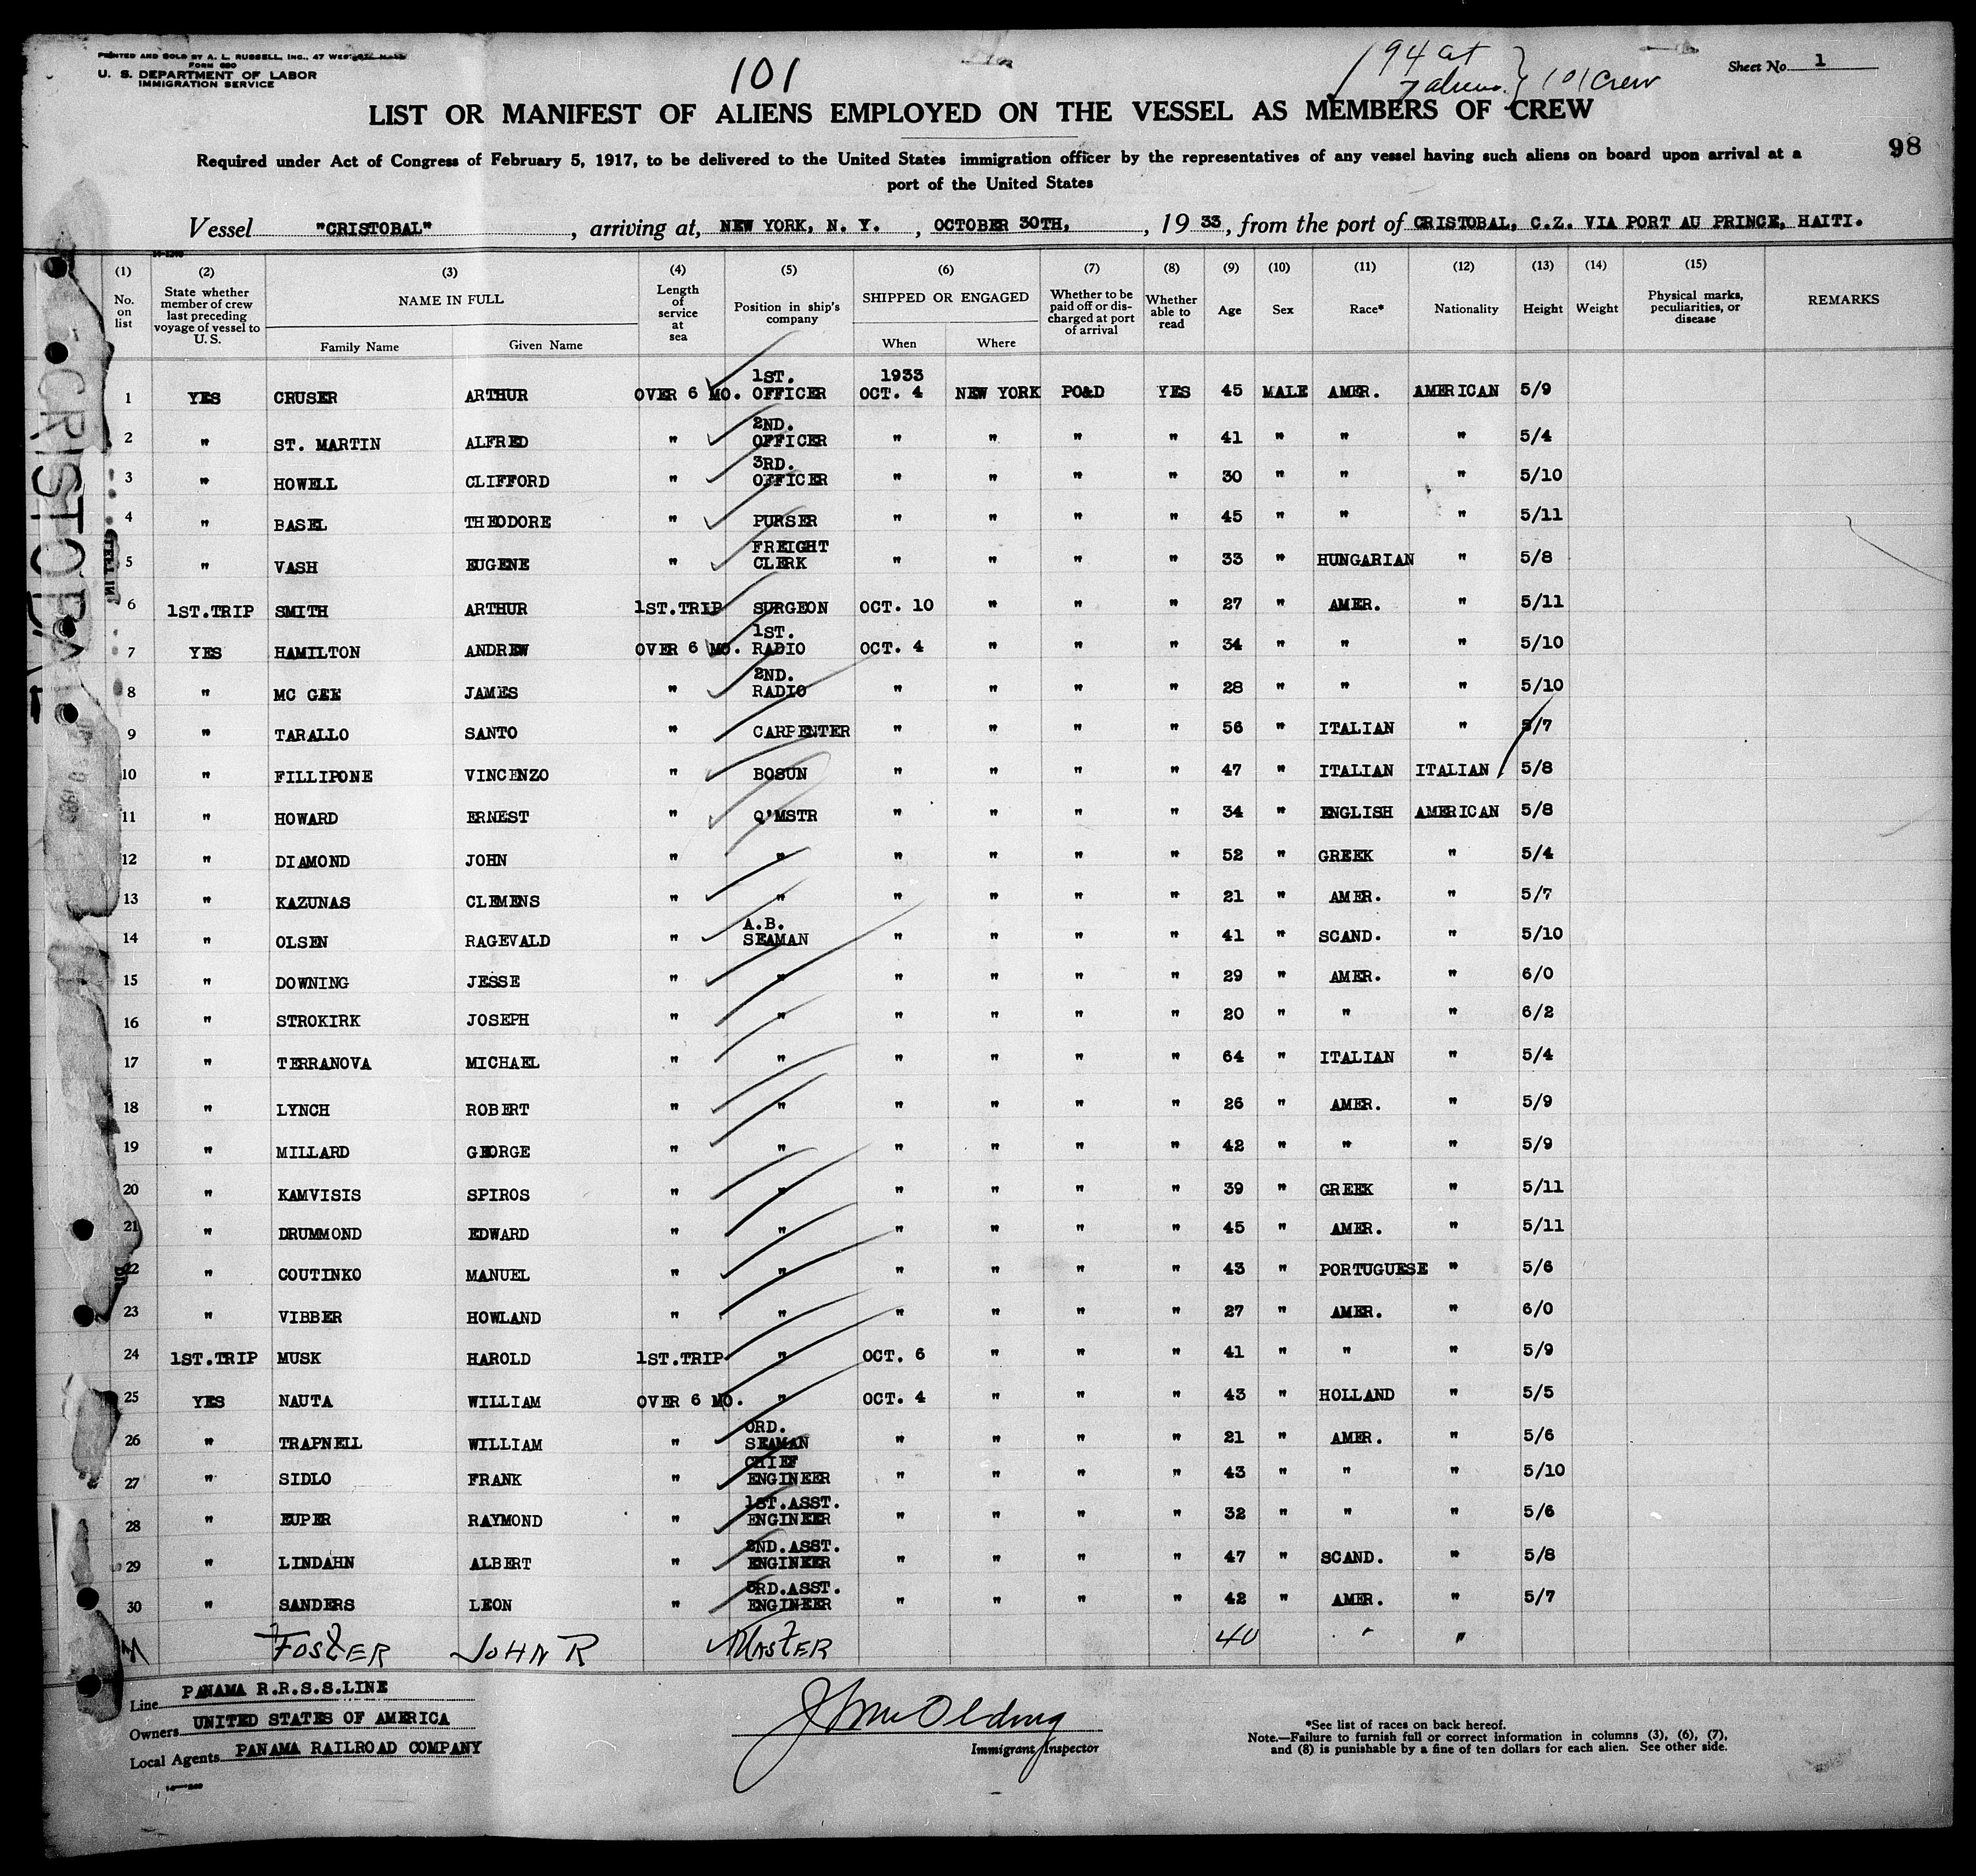 PRINTED AND SOLD BY A. L. RUSSELL, INC., 47 WEST
FORM 680
U. S. DEPARTMENT OF LABOR
IMMIGRATION SERVICE
101
94 at
7 aliens } 101 Crew
Sheet No. 1
LIST OR MANIFEST OF ALIENS EMPLOYED ON THE VESSEL AS MEMBERS OF CREW
98
Required under Act of Congress of February 5, 1917, to be delivered to the United States immigration officer by the representatives of any vessel having such aliens on board upon arrival at a
port of the United States
Vessel "CRISTOBAL", arriving at, NEW YORK, N. Y., OCTOBER 30TH, , 19 33, from the port of CRISTOBAL, C.Z. VIA PORT AU PRINCE, HAITI.
(1) No. on list
(2) State whether member of crew last preceding voyage of vessel to U. S.
(3) NAME IN FULL Family Name Given Name
(4) Length of service at sea
(5) Position in ship's company
(6) SHIPPED OR ENGAGED When Where
(7) Whether to be paid off or discharged at port of arrival
(8) Whether able to read
(9) Age
(10) Sex
(11) Race*
(12) Nationality
(13) Height
(14) Weight
(15) Physical marks, peculiarities, or disease
REMARKS
1 YES CRUSER ARTHUR OVER 6 MO. 1ST. OFFICER 1933 OCT. 4 NEW YORK PO&D YES 45 MALE AMER. AMERICAN 5/9
2 " ST. MARTIN ALFRED " 2ND. OFFICER " " " " 41 " " " 5/4
3 " HOWELL CLIFFORD " 3RD. OFFICER " " " " 30 " " " 5/10
4 " BASEL THEODORE " PURSER " " " " 45 " " " 5/11
5 " VASH EUGENE " FREIGHT CLERK " " " " 33 " HUNGARIAN " 5/8
6 1ST.TRIP SMITH ARTHUR 1ST.TRIP SURGEON OCT. 10 " " " 27 " AMER. " 5/11
7 YES HAMILTON ANDREW OVER 6 MO. 1ST. RADIO OCT. 4 " " " 34 " " " 5/10
8 " MC GEE JAMES " 2ND. RADIO " " " " 28 " " " 5/10
9 " TARALLO SANTO " CARPENTER " " " " 56 " ITALIAN " 5/7
10 " FILLIPONE VINCENZO " BOSUN " " " " 47 " ITALIAN ITALIAN 5/8
11 " HOWARD ERNEST " Q'MSTR " " " " 34 " ENGLISH AMERICAN 5/8
12 " DIAMOND JOHN " " " " " " 52 " GREEK " 5/4
13 " KAZUNAS CLEMENS " " " " " " 21 " AMER. " 5/7
14 " OLSEN RAGEVALD " A.B. SEAMAN " " " " 41 " SCAND. " 5/10
15 " DOWNING JESSE " " " " " " 29 " AMER. " 6/0
16 " STROKIRK JOSEPH " " " " " " 20 " " " 6/2
17 " TERRANOVA MICHAEL " " " " " " 64 " ITALIAN " 5/4
18 " LYNCH ROBERT " " " " " " 26 " AMER. " 5/9
19 " MILLARD GEORGE " " " " " " 42 " " " 5/9
20 " KAMVISIS SPIROS " " " " " " 39 " GREEK " 5/11
21 " DRUMMOND EDWARD " " " " " " 45 " AMER. " 5/11
22 " COUTINKO MANUEL " " " " " " 43 " PORTUGUESE " 5/6
23 " VIBBER HOWLAND " " " " " " 27 " AMER. " 6/0
24 1ST.TRIP MUSK HAROLD 1ST.TRIP " OCT. 6 " " " 41 " " " 5/9
25 YES NAUTA WILLIAM OVER 6 MO. " OCT. 4 " " " 43 " HOLLAND " 5/5
26 " TRAPNELL WILLIAM " ORD. SEAMAN " " " " 21 " AMER. " 5/6
27 " SIDLO FRANK " CHIEF ENGINEER " " " " 43 " " " 5/10
28 " EUPER RAYMOND " 1ST.ASST. ENGINEER " " " " 32 " " " 5/6
29 " LINDAHN ALBERT " 2ND.ASST. ENGINEER " " " " 47 " SCAND. " 5/8
30 " SANDERS LEON " 3RD.ASST. ENGINEER " " " " 42 " AMER. " 5/7
FOSTER JOHN R MASTER 40 " "
Line PANAMA R.R.S.S.LINE
Owners UNITED STATES OF AMERICA
Local Agents PANAMA RAILROAD COMPANY
Immigrant Inspector
*See list of races on back hereof.
Note.—Failure to furnish full or correct information in columns (3), (6), (7),
and (8) is punishable by a fine of ten dollars for each alien. See other side.
CRISTOBAL